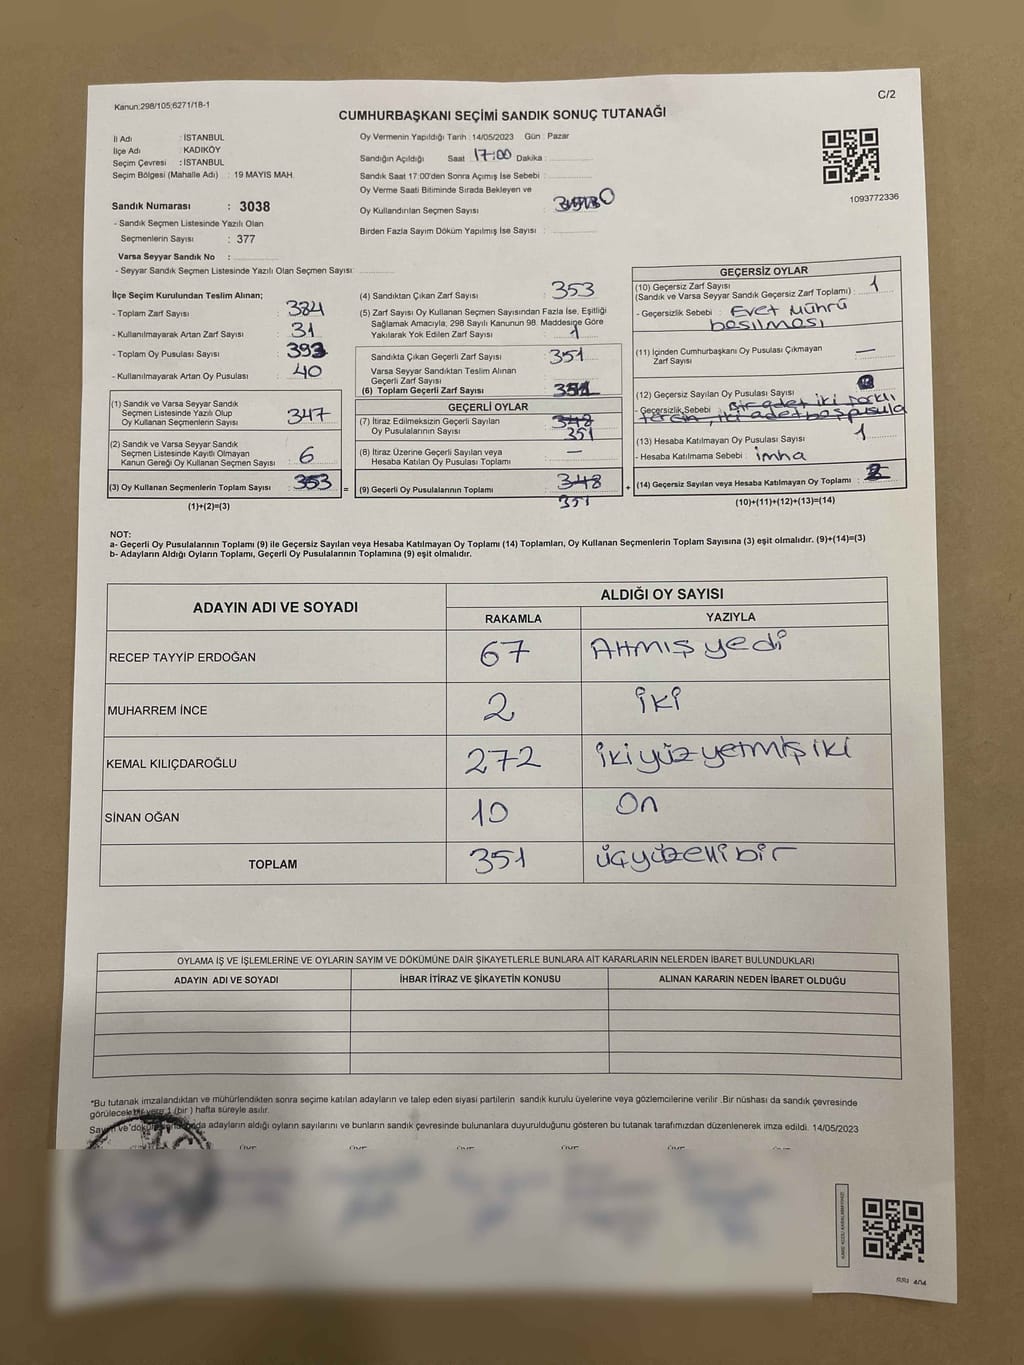 Kanun:298/105;6271/18-1
C/2
CUMHURBAŞKANI SEÇİMİ SANDIK SONUÇ TUTANAĞI
İl Adı : İSTANBUL
İlçe Adı : KADIKÖY
Seçim Çevresi : İSTANBUL
Seçim Bölgesi (Mahalle Adı) : 19 MAYIS MAH.
Oy Vermenin Yapıldığı Tarih : 14/05/2023 Gün : Pazar
Sandığın Açıldığı Saat 17:00 Dakika :
Sandık Saat 17:00'den Sonra Açımış İse Sebebi :
Oy Verme Saati Bitiminde Sırada Bekleyen ve
Oy Kullandırılan Seçmen Sayısı : 0
Birden Fazla Sayım Döküm Yapılmış İse Sayısı :
1093772336
Sandık Numarası : 3038
- Sandık Seçmen Listesinde Yazılı Olan
Seçmenlerin Sayısı : 377
Varsa Seyyar Sandık No :
- Seyyar Sandık Seçmen Listesinde Yazılı Olan Seçmen Sayısı:
İlçe Seçim Kurulundan Teslim Alınan;
- Toplam Zarf Sayısı : 384
- Kullanılmayarak Artan Zarf Sayısı : 31
- Toplam Oy Pusulası Sayısı : 393
- Kullanılmayarak Artan Oy Pusulası : 40
(1) Sandık ve Varsa Seyyar Sandık
Seçmen Listesinde Yazılı Olup
Oy Kullanan Seçmenlerin Sayısı : 347
(2) Sandık ve Varsa Seyyar Sandık
Seçmen Listesinde Kayıtlı Olmayan
Kanun Gereği Oy Kullanan Seçmen Sayısı : 6
(3) Oy Kullanan Seçmenlerin Toplam Sayısı : 353 =
(1)+(2)=(3)
(4) Sandıktan Çıkan Zarf Sayısı : 353
(5) Zarf Sayısı Oy Kullanan Seçmen Sayısından Fazla İse, Eşitliği
Sağlamak Amacıyla; 298 Sayılı Kanunun 98. Maddesine Göre
Yakılarak Yok Edilen Zarf Sayısı : 1
Sandıkta Çıkan Geçerli Zarf Sayısı : 351
Varsa Seyyar Sandıktan Teslim Alınan
Geçerli Zarf Sayısı :
(6) Toplam Geçerli Zarf Sayısı : 351
GEÇERLİ OYLAR
(7) İtiraz Edilmeksizin Geçerli Sayılan
Oy Pusulalarının Sayısı : 348
351
(8) İtiraz Üzerine Geçerli Sayılan veya
Hesaba Katılan Oy Pusulası Toplamı : —
(9) Geçerli Oy Pusulalarının Toplamı : 348 +
351
GEÇERSİZ OYLAR
(10) Geçersiz Zarf Sayısı
(Sandık ve Varsa Seyyar Sandık Geçersiz Zarf Toplamı) : 1
- Geçersizlik Sebebi : Evet Mührü
basılması
(11) İçinden Cumhurbaşkanı Oy Pusulası Çıkmayan
Zarf Sayısı : —
(12) Geçersiz Sayılan Oy Pusulası Sayısı :
- Geçersizlik Sebebi : Bir adet iki farklı
tercih, iki adet boş pusula
(13) Hesaba Katılmayan Oy Pusulası Sayısı : 1
- Hesaba Katılmama Sebebi : imha
(14) Geçersiz Sayılan veya Hesaba Katılmayan Oy Toplamı : 2
(10)+(11)+(12)+(13)=(14)
NOT:
a- Geçerli Oy Pusulalarının Toplamı (9) ile Geçersiz Sayılan veya Hesaba Katılmayan Oy Toplamı (14) Toplamları, Oy Kullanan Seçmenlerin Toplam Sayısına (3) eşit olmalıdır. (9)+(14)=(3)
b- Adayların Aldığı Oyların Toplamı, Geçerli Oy Pusulalarının Toplamına (9) eşit olmalıdır.
ADAYIN ADI VE SOYADI
ALDIĞI OY SAYISI
RAKAMLA YAZIYLA
RECEP TAYYİP ERDOĞAN 67 Altmış yedi
MUHARREM İNCE 2 iki
KEMAL KILIÇDAROĞLU 272 ikiyüzyetmişiki
SİNAN OĞAN 10 On
TOPLAM 351 üçyüzellibir
OYLAMA İŞ VE İŞLEMLERİNE VE OYLARIN SAYIM VE DÖKÜMÜNE DAİR ŞİKAYETLERLE BUNLARA AİT KARARLARIN NELERDEN İBARET BULUNDUKLARI
ADAYIN ADI VE SOYADI İHBAR İTİRAZ VE ŞİKAYETİN KONUSU ALINAN KARARIN NEDEN İBARET OLDUĞU
*Bu tutanak imzalandıktan ve mühürlendikten sonra seçime katılan adayların ve talep eden siyasi partilerin sandık kurulu üyelerine veya gözlemcilerine verilir .Bir nüshası da sandık çevresinde
görülecek bir yere 1 (bir ) hafta süreyle asılır.
adayların aldığı oyların sayılarını ve bunların sandık çevresinde bulunanlara duyurulduğunu gösteren bu tutanak tarafımızdan düzenlenerek imza edildi. 14/05/2023